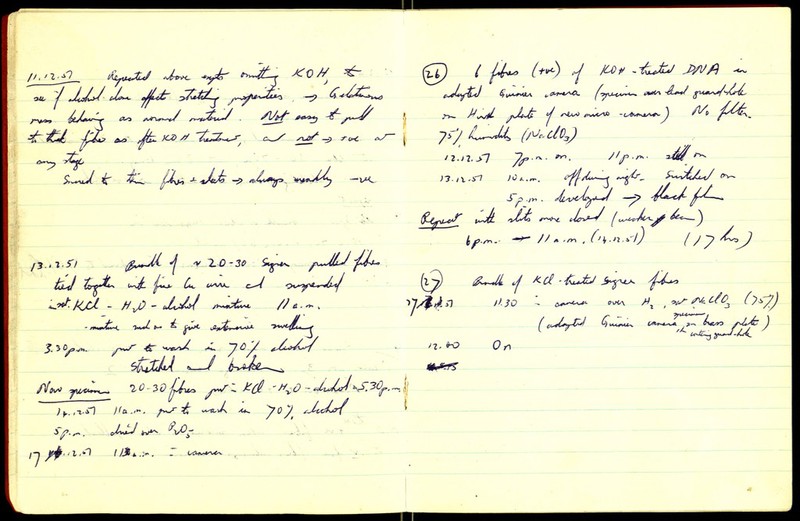 11.12.51 Repeated above expts omitting KOH, to
see if alcohol alone affects stretching properties → Gelatinous
mass behaving as normal material. Not easy to pull
to thin fibre as after KOH treatment, and not → +ve at
any stage
13.12.51 Bundle of 20-30 Signer pulled fibres
tied together with fine Cu wire and suspended
in sat KCl - H2O - alcohol mixture 11 a.m.
- mixture such as to give extensive swelling
3.30 p.m. put to wash in 70% alcohol
stretched and broken
New specimen 20-30 fibres put in KCl - H2O - alcohol 5.30 p.m
14.12.51 11 a.m. put to wash in 70% alcohol
5 p.m. dried over P2O5
17.12.51 a.m. in camera
(26) 6 fibres (+ve) of KOH-treated DNA in
adapted Guinier camera (specimen over lead guard-hole
on plate of new micro-camera) No filter.
75% humidity (NaClO3)
12.12.51 7 p.m. on. 11 p.m. still on
13.12.51 10 a.m. off during night - Switched on
5 p.m. developed → black film
Repeat with slits more closed (weaker beam)
6 p.m. → 11 a.m. (14.12.51) (17 hrs)
(27) Bundle of KCl-treated Signer fibres
11.30 in camera over H2, sat NaClO3 (75%)
(adapted Guinier camera, specimen on brass plate)
12.40 On